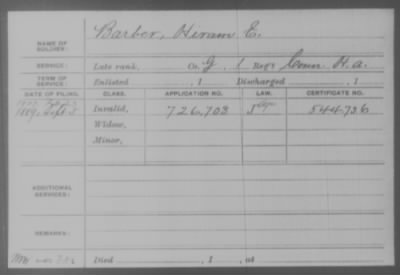 Barber, Hiram E.
NAME OF SOLDIER:
SERVICE: Late rank, Co. G, 1 Reg't Conn H.a.
TERM OF SERVICE: Enlisted , 1 Discharged , 1
DATE OF FILING. CLASS. APPLICATION NO. LAW. CERTIFICATE NO.
1889, Sept 5 Invalid, 726,703 544,736
Widow,
Minor,
ADDITIONAL SERVICES:
REMARKS:
Died , 1 , at